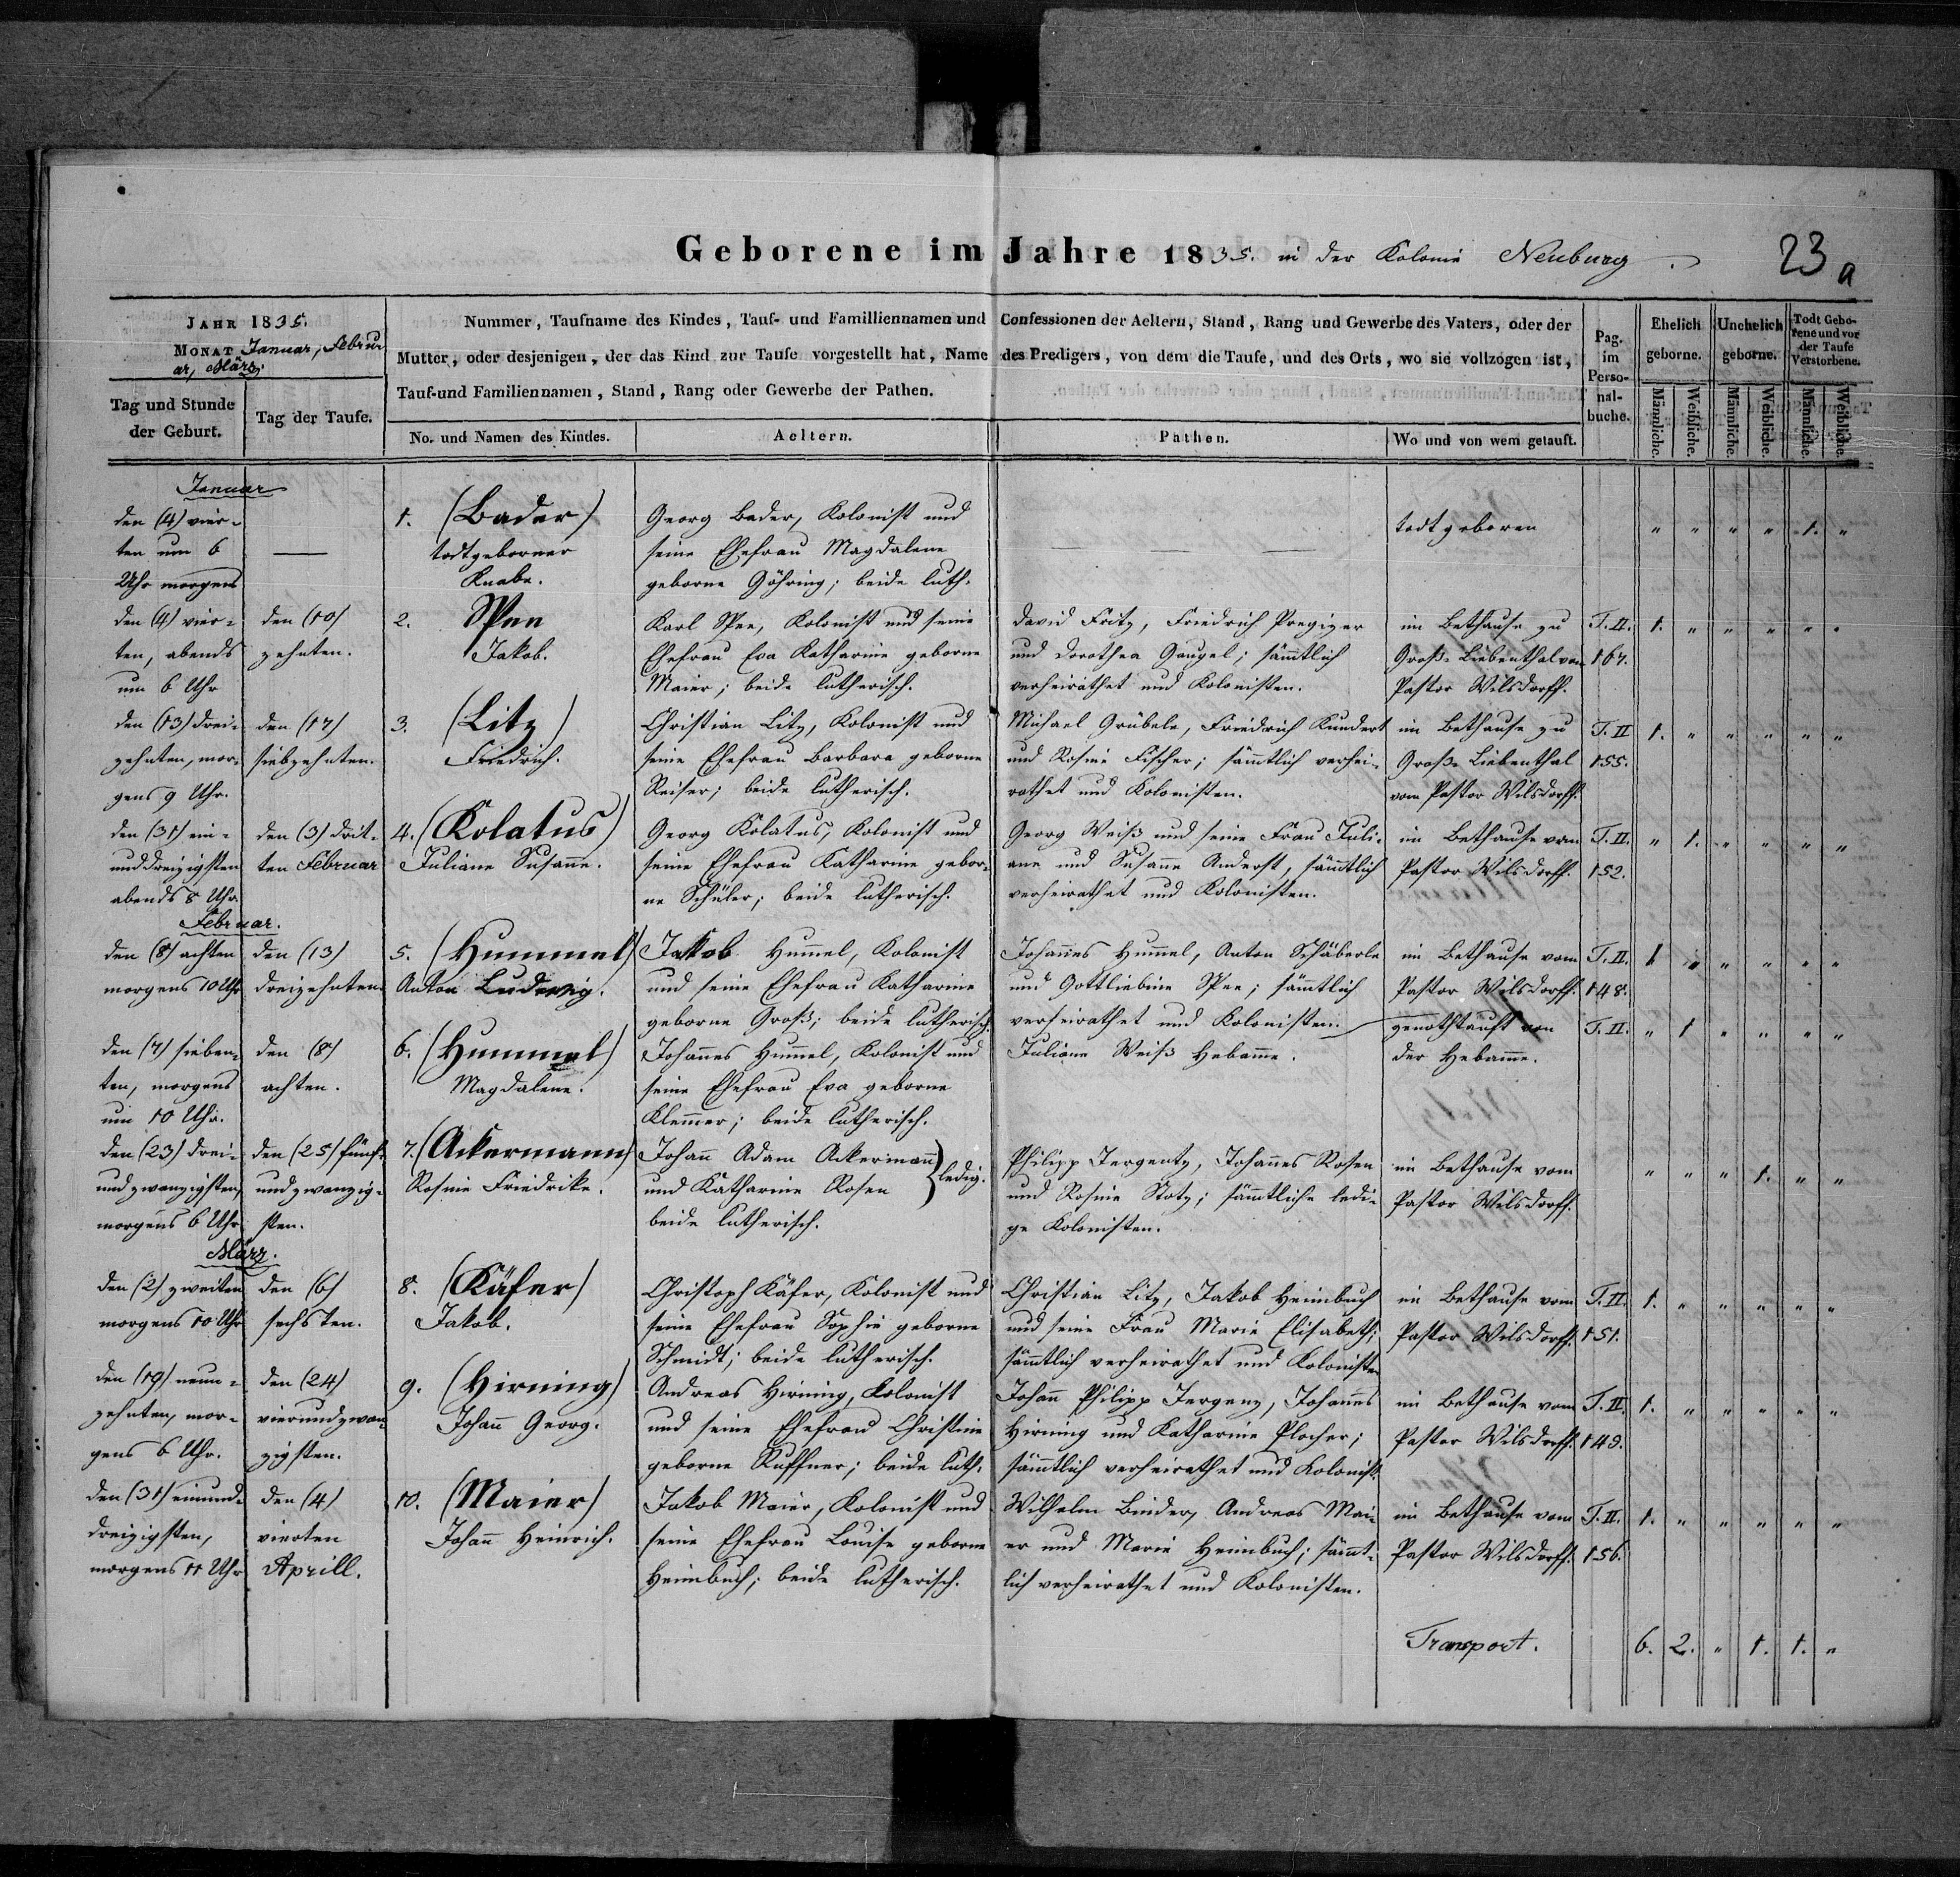 Geborene im Jahre 1835. in der Kolonie Neuburg.
23a
Jahr 1835.
Monat Januar, Februar, März.
Tag und Stunde der Geburt.
Tag der Taufe.
Nummer, Taufname des Kindes, Tauf- und Familliennamen und Confessionen der Aeltern, Stand, Rang und Gewerbe des Vaters, oder der
Mutter, oder desjenigen, der das Kind zur Taufe vorgestellt hat, Name des Predigers, von dem die Taufe, und des Orts, wo sie vollzogen ist,
Tauf-und Familiennamen, Stand, Rang oder Gewerbe der Pathen.
No. und Namen des Kindes.
Aeltern.
Pathen.
Wo und von wem getauft.
Pag. im Perso-nal-buche.
Ehelich geborne.
Unehelich geborne.
Todt Gebo-rene und vor der Taufe Verstorbene.
Männliche. Weibliche. Männliche. Weibliche. Männliche. Weibliche.
Januar
den (4) vier-
ten um 6
Uhr morgens
—
1. (Bader)
todtgeborner
Knabe.
Georg Bader, Kolonist und
seine Ehefrau Magdalene
geborne Göhring; beide luth.
— —
todt geboren
" " " " 1. "
den (4) vier-
ten, abends
um 6 Uhr
den (10)
zehnten.
2. Spen
Jakob.
Karl Spen, Kolonist und seine
Ehefrau Eva Katharine geborne
Maier; beide lutherisch.
David Fritz, Friedrich Pregizer
und Dorothea Gaugel; sämtlich
verheirathet und Kolonisten.
im Bethause zu
Groß-Liebenthal vom
Pastor Wilsdorff.
T. II.
167.
1. " " " " "
den (13) drei-
zehnten, mor-
gens 9 Uhr.
den (17)
siebzehnten.
3. (Litz)
Friedrich.
Christian Litz, Kolonist und
seine Ehefrau Barbara geborne
Reiser; beide lutherisch.
Michael Grübele, Friedrich Kundert
und Rosine Fischer; sämtlich verhei-
rathet und Kolonisten.
im Bethause zu
Groß-Liebenthal
vom Pastor Wilsdorff.
T. II
155.
1. " " " " "
den (31) ein-
unddreizigsten
abends 8 Uhr.
den (3) drit-
ten Februar
4. (Kolatus)
Juliane Susanne.
Georg Kolatus, Kolonist und
seine Ehefrau Katharine gebor-
ne Schüler; beide lutherisch.
Georg Weiß und seine Frau Juli-
ane und Susanne Anderst, sämtlich
verheirathet und Kolonisten.
im Bethause vom
Pastor Wilsdorff.
T. II.
152.
" 1. " " " "
Februar.
den (8) achten
morgens 10 Uhr
den (13)
dreizehnten.
5. (Hummel)
Anton Ludewig.
Jakob Hummel, Kolonist
und seine Ehefrau Katharine
geborne Groß; beide lutherisch.
Johannes Hummel, Anton Schäberle
und Gottliebine Spen; sämtlich
verheirathet und Kolonisten.
im Bethause vom
Pastor Wilsdorff.
T. II.
148.
1 " " " " "
den (7) sieben-
ten, morgens
um 10 Uhr.
den (8)
achten.
6. (Hummel)
Magdalene.
Johannes Hummel, Kolonist und
seine Ehefrau Eva geborne
Klemmer; beide lutherisch.
Juliane Weiß Hebamme.
genothtauft von
der Hebamme.
T. II.
" 1 " " " "
den (23) drei-
undzwanzigsten,
morgens 6 Uhr
den (25) fünf-
undzwanzig-
sten.
7. (Ackermann)
Rosine Friedrike.
Johann Adam Ackermann
und Katharine Rosen
beide lutherisch.
ledig.
Philipp Jergentz, Johannes Rosen
und Rosine Stotz; sämtliche ledi-
ge Kolonisten.
im Bethause vom
Pastor Wilsdorff.
" " " 1. " "
März.
den (2) zweiten
morgens 10 Uhr
den (6)
sechsten.
8. (Käfer)
Jakob.
Christoph Käfer, Kolonist und
seine Ehefrau Sophie geborne
Schmidt; beide lutherisch.
Christian Litz, Jakob Heimbuch
und seine Frau Marie Elisabeth;
sämtlich verheirathet und Kolonisten
im Bethause vom
Pastor Wilsdorff.
T. II.
151.
1. " " " " "
den (19) neun-
zehnten, mor-
gens 6 Uhr.
den (24)
vierundzwan-
zigsten.
9. (Hirning)
Johann Georg.
Andreas Hirning, Kolonist
und seine Ehefrau Christine
geborne Kuffner; beide luth.
Johann Philipp Jergenz, Johannes
Hirning und Katharine Plocher;
sämtlich verheirathet und Kolonist.
im Bethause vom
Pastor Wilsdorff.
T. II.
149.
1. " " " " "
den (31) einund-
dreizigsten,
morgens 11 Uhr
den (4)
vierten
Aprill.
10. (Maier)
Johann Heinrich.
Jakob Maier, Kolonist und
seine Ehefrau Louise geborne
Heimbuch; beide lutherisch.
Wilhelm Binder, Andreas Mai-
er und Marie Heimbuch; sämt-
lich verheirathet und Kolonisten.
im Bethause vom
Pastor Wilsdorff.
T. II.
156.
1. " " " " "
Transport. 6. 2. " 1. 1. "